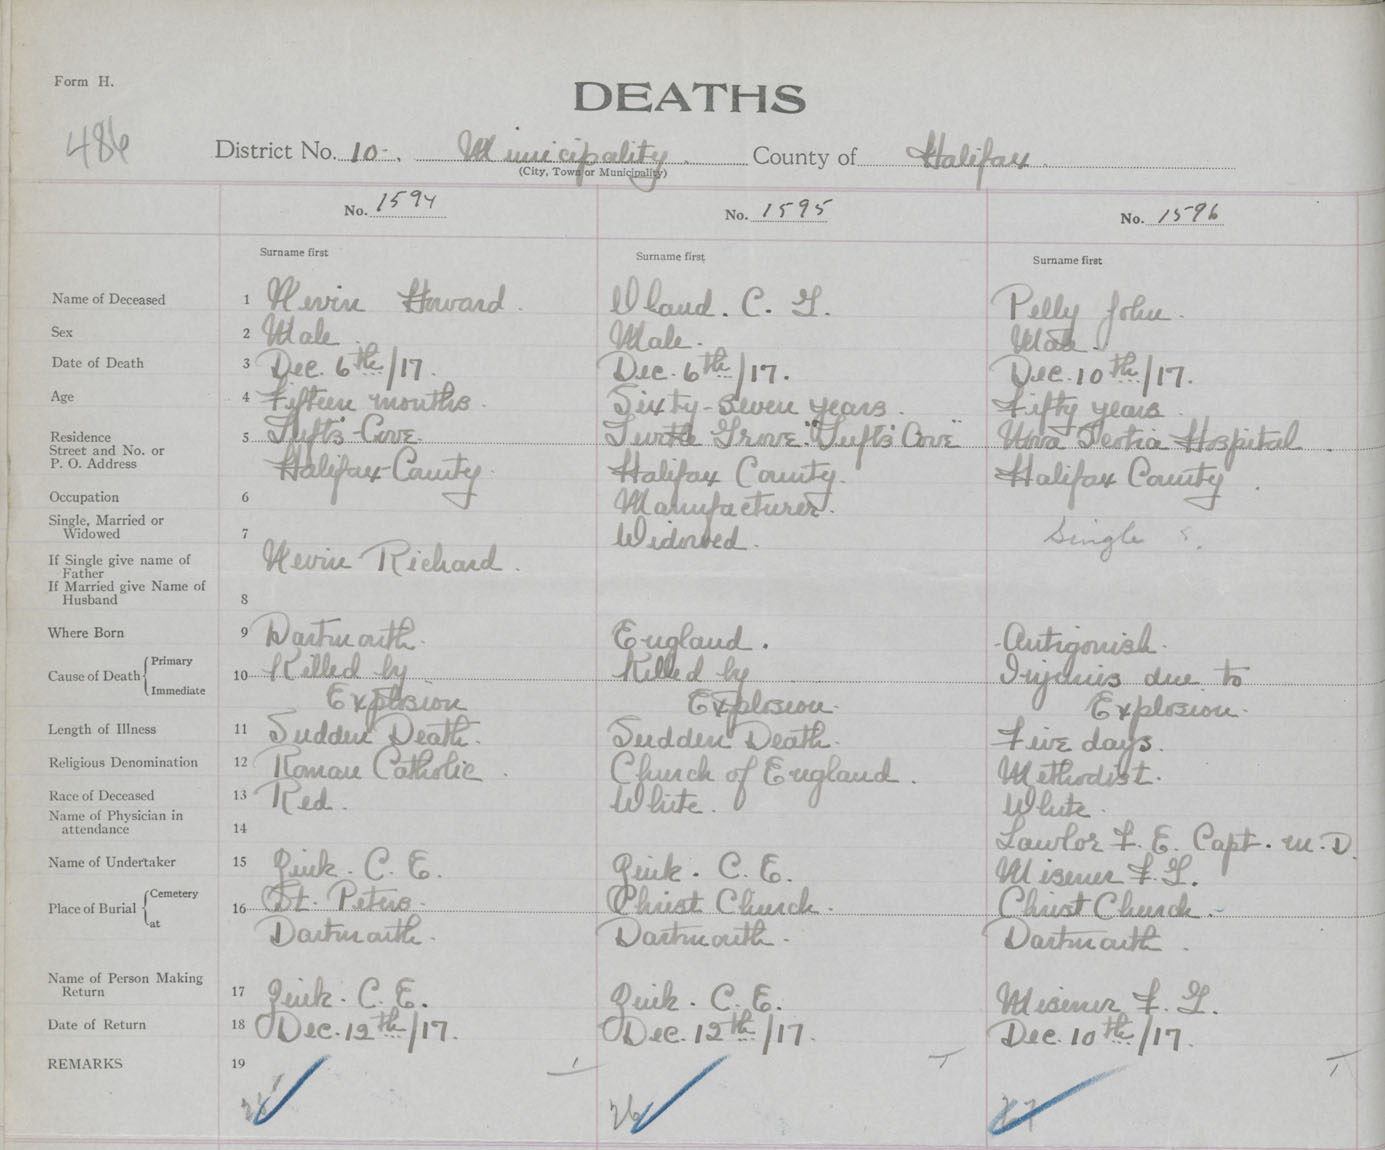 Form H.
DEATHS
486
District No. 10-. Municipality. County of Halifax.
(City, Town or Municipality)
No. 1594 No. 1595 No. 1596
Surname first Surname first Surname first
Name of Deceased 1 Nevin Howard. Wland. C. G. Pelly John.
Sex 2 Male. Male. Male.
Date of Death 3 Dec. 6th/17. Dec. 6th/17. Dec. 10th/17.
Age 4 Fifteen months. Sixty-seven years. Fifty years.
Residence 5 Tufts Cove. Turtle Grove. "Tufts Cove" Nova Scotia Hospital.
Street and No. or
P. O. Address Halifax County. Halifax County. Halifax County.
Occupation 6 Manufacturer.
Single, Married or
Widowed 7 Widowed. Single S.
If Single give name of
Father Nevin Richard.
If Married give Name of
Husband 8
Where Born 9 Dartmouth. England. Antigonish.
Cause of Death Primary 10 Killed by Killed by Injuries due to
Immediate Explosion Explosion. Explosion.
Length of Illness 11 Sudden Death. Sudden Death. Five days.
Religious Denomination 12 Roman Catholic. Church of England. Methodist.
Race of Deceased 13 Red. White. White.
Name of Physician in
attendance 14 Lawlor F. E. Capt. M. D.
Name of Undertaker 15 Zink. C. E. Zink. C. E. Misener F. G.
Place of Burial Cemetery 16 St. Peters. Christ Church. Christ Church.
at Dartmouth. Dartmouth. Dartmouth.
Name of Person Making
Return 17 Zink. C. E. Zink. C. E. Misener F. G.
Date of Return 18 Dec. 12th/17. Dec. 12th/17. Dec. 10th/17.
REMARKS 19
26 27